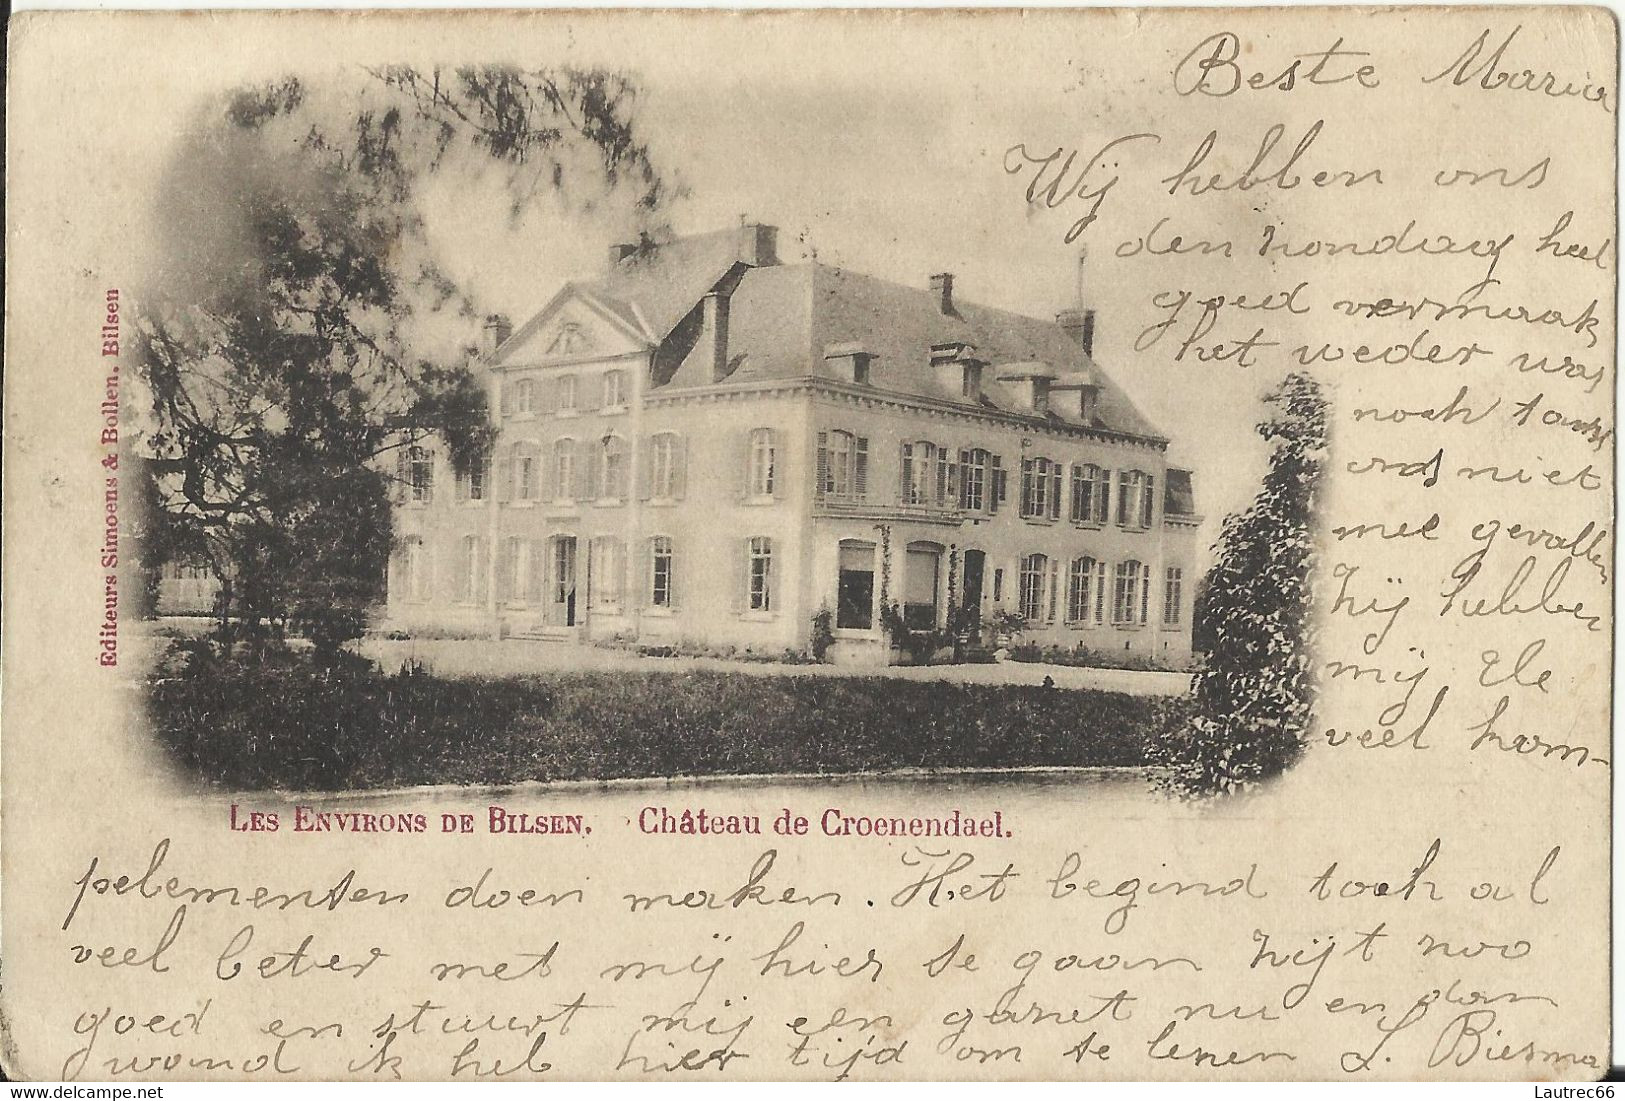 Beste Maria
Wij hebben ons
den zondag heel
goed vermaak
het weder was
noch
ons niet
mee gevallen
zij hebben
mij
veel kom-
Editeurs Simoens & Bollen. Bilsen
LES ENVIRONS DE BILSEN. Château de Croenendael.
pelementen doen maken. Het begind toch al
veel beter met mij hier te gaan zijt zoo
goed en stuurt mij een gazet nu en dan
wand ik heb hier tijd om te lezen L. Biesma
delcampe.net
Lautrec66